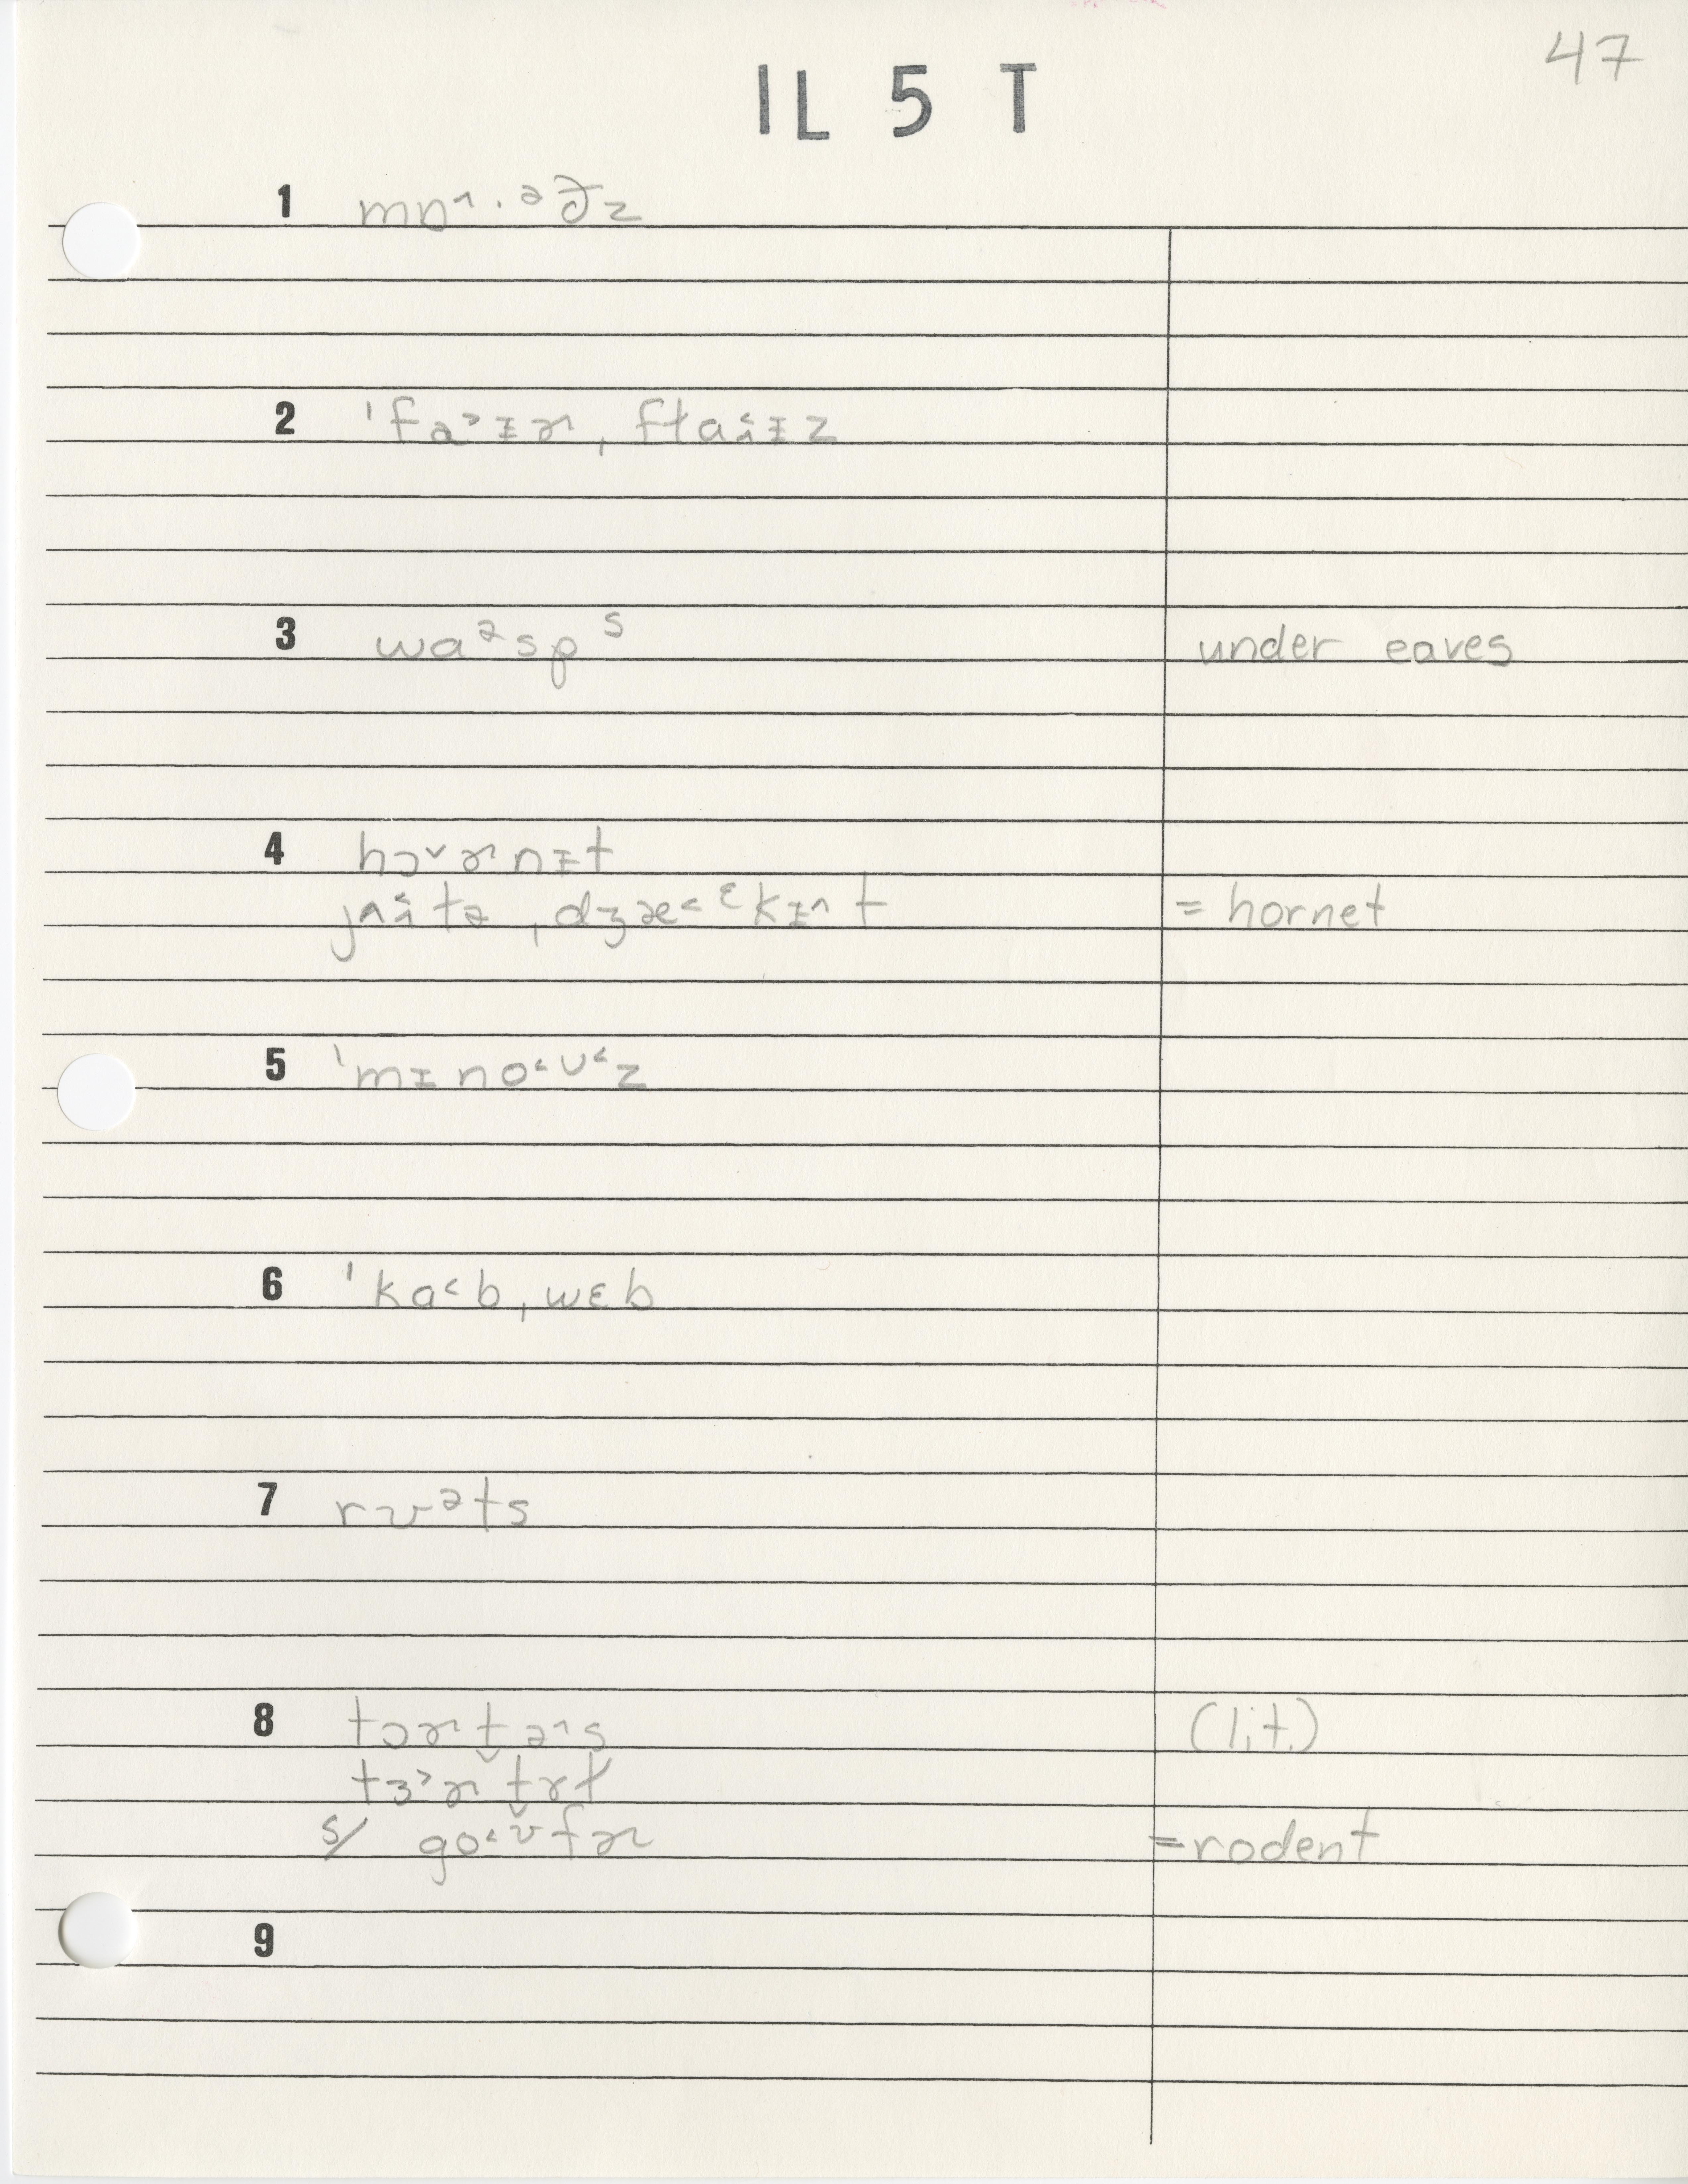 47
IL 5 T
1 mɒ˄·ᵊðz
2 ˈfa˃ɪɚ, flaɪ˂ɪz
3 waᵊspˢ under eaves
4 hɔ˅ɚnɪt
dʒæ˂ᵋkɪ˄t = hornet
5 ˈmɪno˂ʊ˂z
6 ˈka˂b, wɛb
7 ts
8 tɔɚtə˄s (lit.)
s/ go˂ʊfɚ =rodent
9